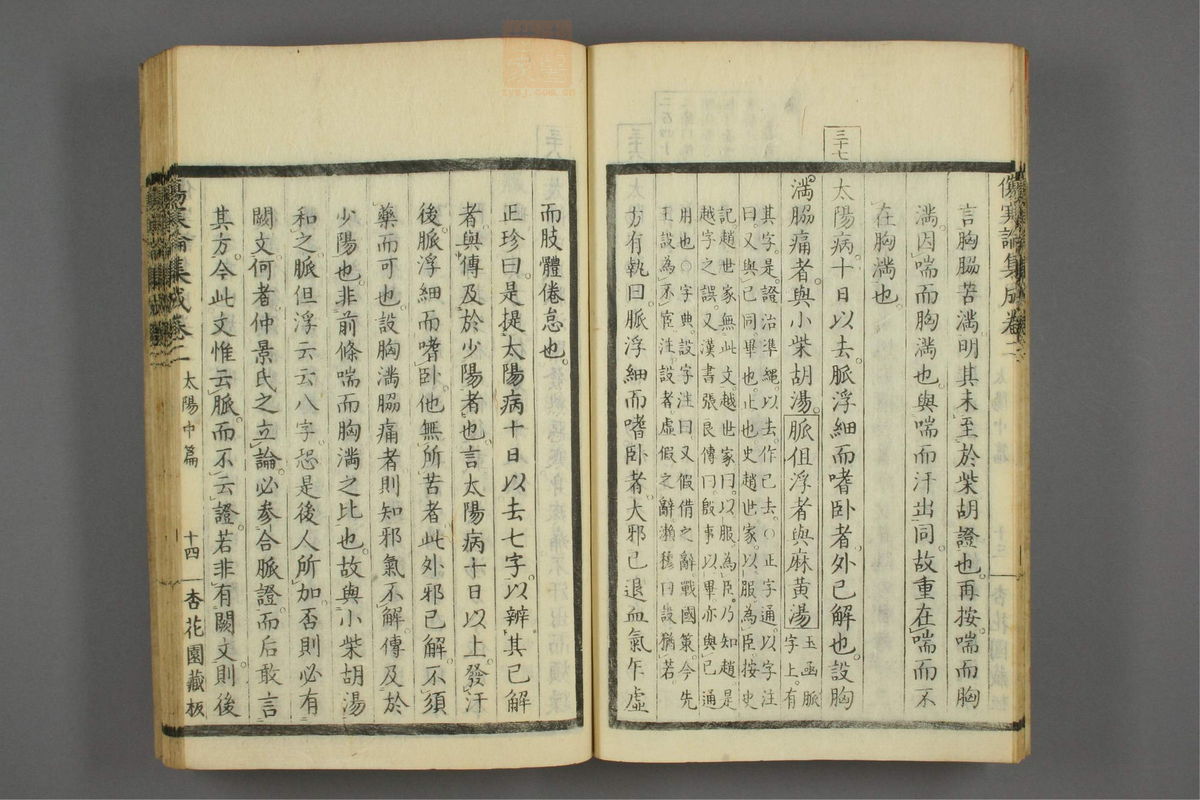 傷寒論集成卷二
言胸脇苦滿明其未至於柴胡證也再按喘而胸
滿因喘而胸滿也與喘而汗出同故重在喘而不
在胸滿也
三十七
太陽病十日以去脈浮細而嗜卧者外已解也設胸
滿脇痛者與小柴胡湯脈但浮者與麻黃湯玉函脈
字上有
其字是證治準繩以去作已去○正字通以字注
曰又與已同畢也止也史趙世家以服為臣按史
記趙世家無此文越世家曰以服為臣乃知趙是
越字之誤又漢書張良傳曰殷事以畢亦與已通
用也○字典設字注曰又假借之辭戰國策今先
王設為不宦注設者虛假之辭瀨穆曰設猶若
方有執曰脈浮細而嗜卧者大邪已退血氣乍虛
而肢體倦怠也
正珍曰是提太陽病十日以去七字以辨其已解
者與傳及於少陽者也言太陽病十日以上發汗
後脈浮細而嗜卧他無所苦者此外邪已解不須
藥而可也設胸滿脇痛者則知邪氣不解傳及於
少陽也非前條喘而胸滿之比也故與小柴胡湯
和之脈但浮云云八字恐是後人所加否則必有
闕文何者仲景氏之立論必參合脈證而后敢言
其方今此文惟云脈而不云證若非有闕文則後
傷寒論集成卷二
太陽中篇
十四
杏花園藏板